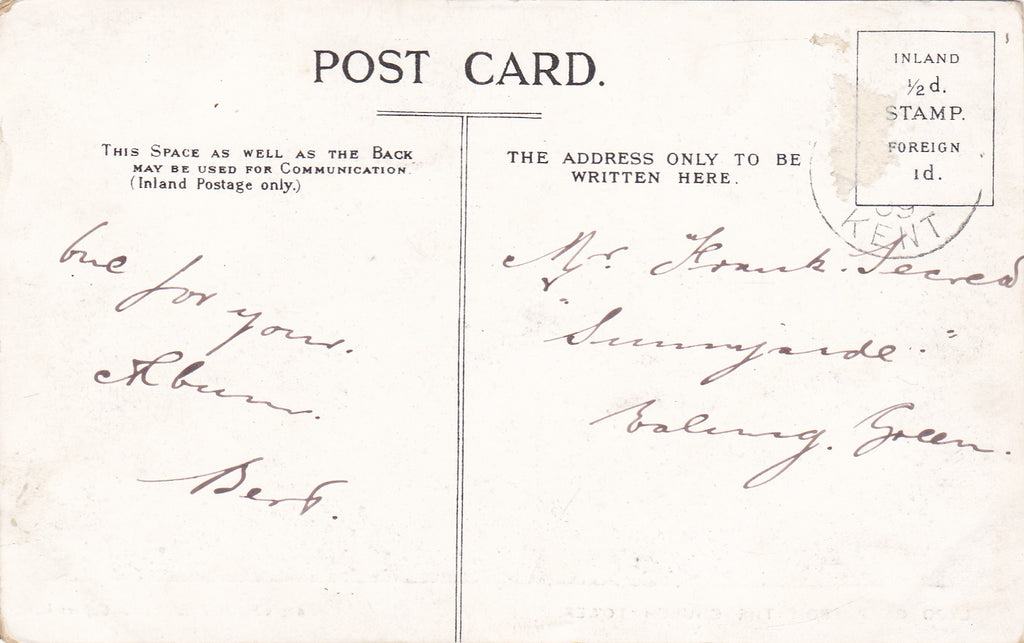 POST CARD.
THIS SPACE AS WELL AS THE BACK
MAY BE USED FOR COMMUNICATION.
(Inland Postage only.)
THE ADDRESS ONLY TO BE
WRITTEN HERE.
INLAND
½d.
STAMP.
FOREIGN
1d.
09
KENT
One for your.
Album.
Bert.
Mr. Frank.
Ealing. Green.